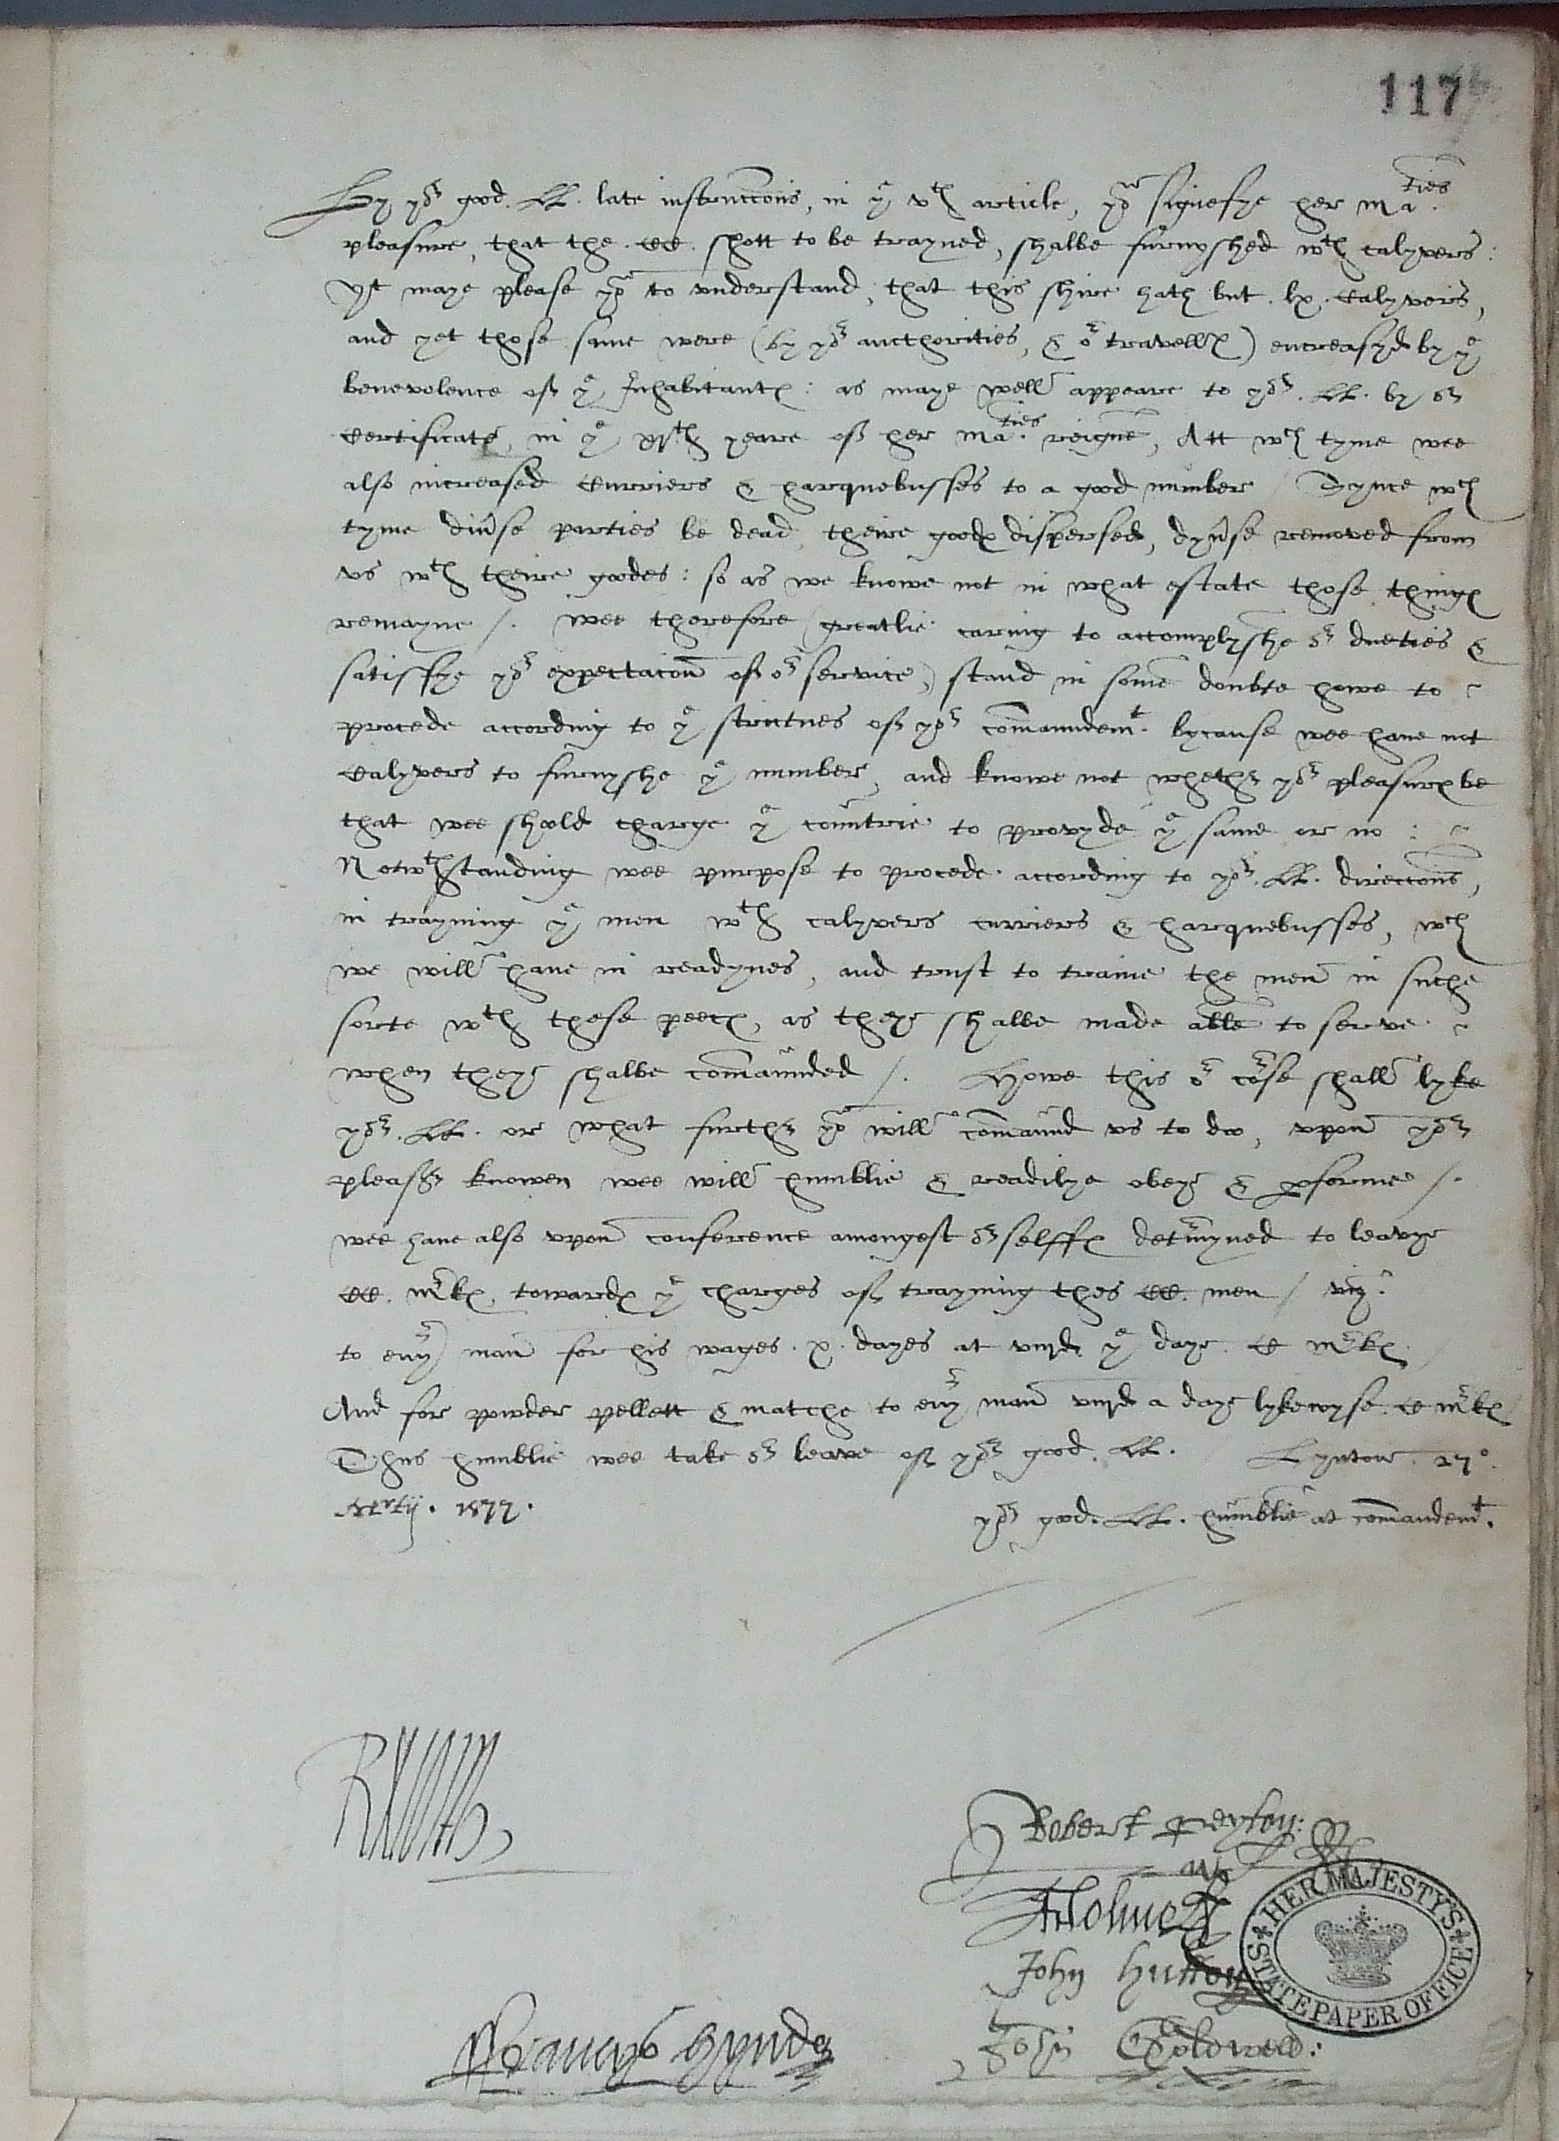 117
By yor good. LL. late instruccons, in ye vth article, yow signefye her Maties
pleasure, that the .CC. shott to be trayned, shalbe furnyshed wth calyvers:
Yt maye please yow to vnderstand, that this shire hath but .lx. Calyvers,
and yet those same were (by yor aucthorities, & or travells) encreasyd by ye
benevolence of ye Inhabitants: as maye well appeare to yor. LL. by or
Certificate, in ye xvjth yeare of her Maties reigne, Att wch tyme wee
also increased Curriers & harquebusses to a good number / Synce wch
tyme diuse parties be dead, theire goods dispersed, dyuse removed from
vs wth theire goodes: so as we knowe not in what estate those things
remayne /. Wee therefore (greatlie caring to accomplyshe or dueties &
satisffye yor expectacon of or service,) stand in some doubte howe to
procede according to ye strictnes of yor commaundemt. bycause wee haue not
Calyvers to furnyshe ye number, and knowe not whether yor pleasures be
that wee shold charge ye countrie to provyde ye same or no:
Notwthstanding wee purpose to procede according to yor. LL. direccons,
in trayning ye men wth calyvers curriers & harquebusses, wch
we will haue in readynes, and trust to traine the men in suche
sorte wth these peecs, as theye shalbe made able to serve
when theye shalbe commaunded /. Howe this or corse shall lyke
yor. LL. or what further yow will commaund vs to doo, vpon yor
pleasr knowen wee will humblie & readilye obeye & pforme /.
wee haue also vpon conference amongest or selffs detmyned to leavye
CC. mrks, towards ye charges of trayning thes CC. men / viz.
to euy man for his wages .x. dayes at viijd ye daye. C mrks.
And for powder pellett & matche to euy man viijd a daye lykewyse. C mrks
Thus humblie wee take or leave of yor good. LL. Lynton. 27o.
Martij. 1577.
yor good. LL. humblie at commandemt.
R North
Robert Peyton:
John Hutton
Frauncys Hynde
John Coldwell:
HER MAJESTY'S STATE PAPER OFFICE